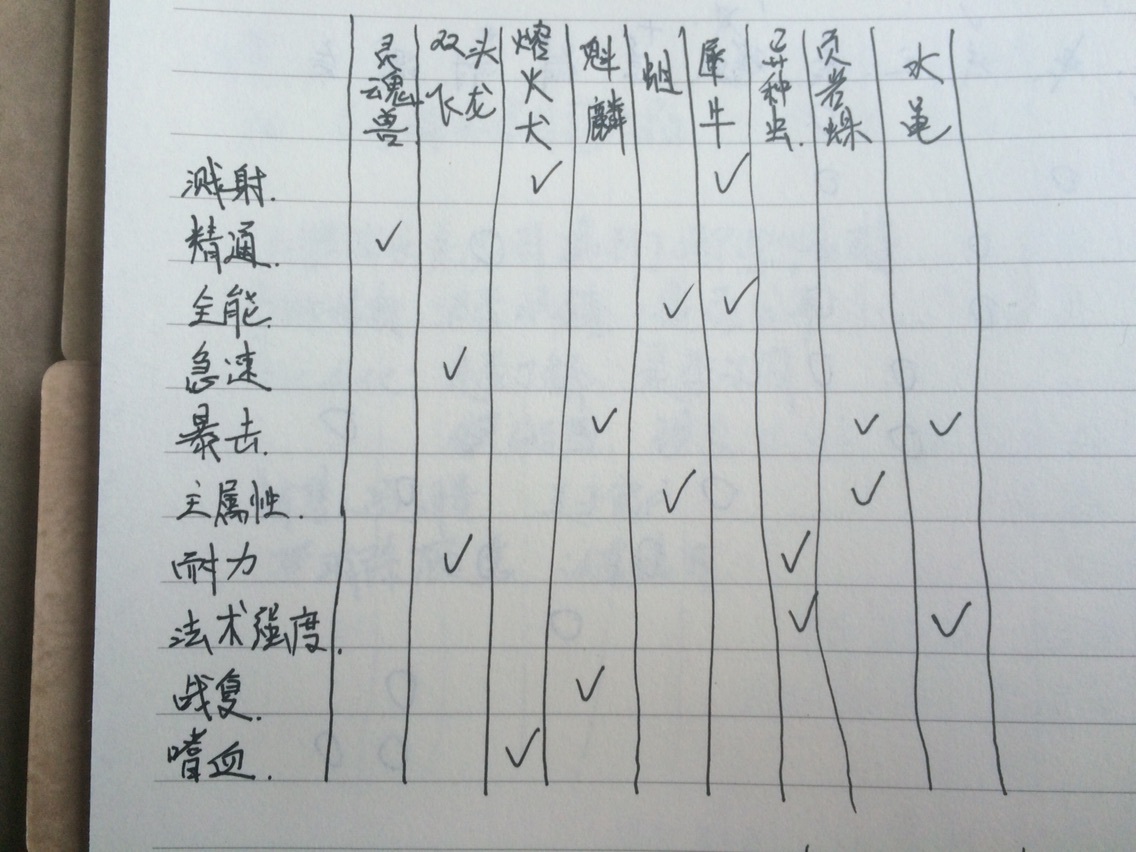 灵魂兽 双头飞龙 熔火犬 魁麟 蛙 犀牛 异种虫. 页岩蛛 水黾
溅射. ✓ ✓
精通. ✓
全能. ✓ ✓
急速 ✓
暴击 ✓ ✓ ✓
主属性. ✓ ✓
耐力 ✓ ✓
法术强度. ✓ ✓
战复. ✓
嗜血. ✓